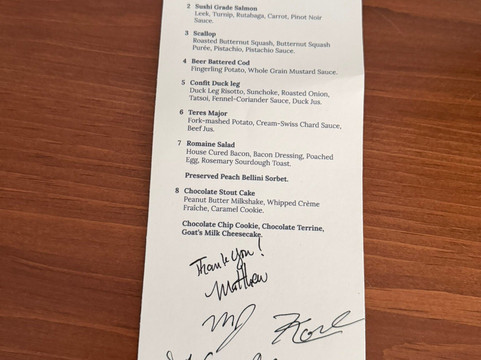 2 Sushi Grade Salmon
Leek, Turnip, Rutabaga, Carrot, Pinot Noir
Sauce.
3 Scallop
Roasted Butternut Squash, Butternut Squash
Purée, Pistachio, Pistachio Sauce.
4 Beer Battered Cod
Fingerling Potato, Whole Grain Mustard Sauce.
5 Confit Duck leg
Duck Leg Risotto, Sunchoke, Roasted Onion,
Tatsoi, Fennel-Coriander Sauce, Duck Jus.
6 Teres Major
Fork-mashed Potato, Cream-Swiss Chard Sauce,
Beef Jus.
7 Romaine Salad
House Cured Bacon, Bacon Dressing, Poached
Egg, Rosemary Sourdough Toast.
Preserved Peach Bellini Sorbet.
8 Chocolate Stout Cake
Peanut Butter Milkshake, Whipped Crème
Fraîche, Caramel Cookie.
Chocolate Chip Cookie, Chocolate Terrine,
Goat's Milk Cheesecake.
Thank you!
Matthew